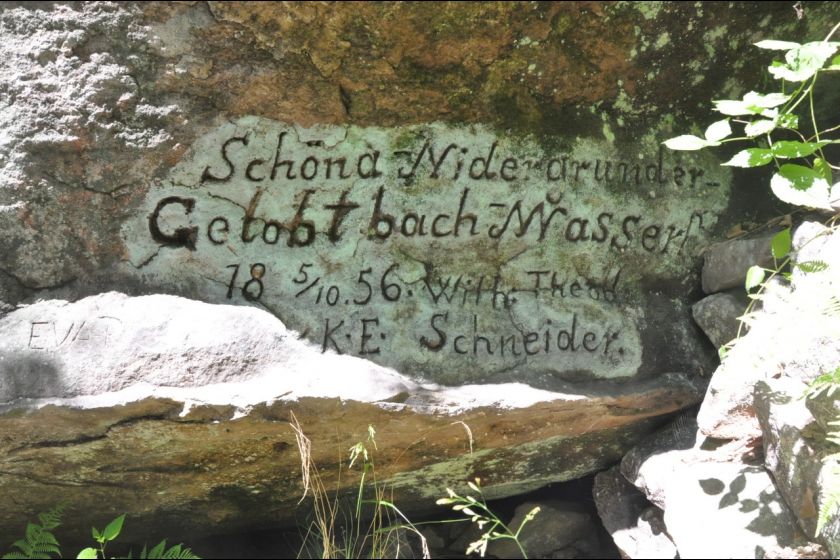 Schöna-Nidergrunder-
Gelobtbach-Wasserf
18 5/10. 56. Wilh. Theod
K. E. Schneider.
EVA